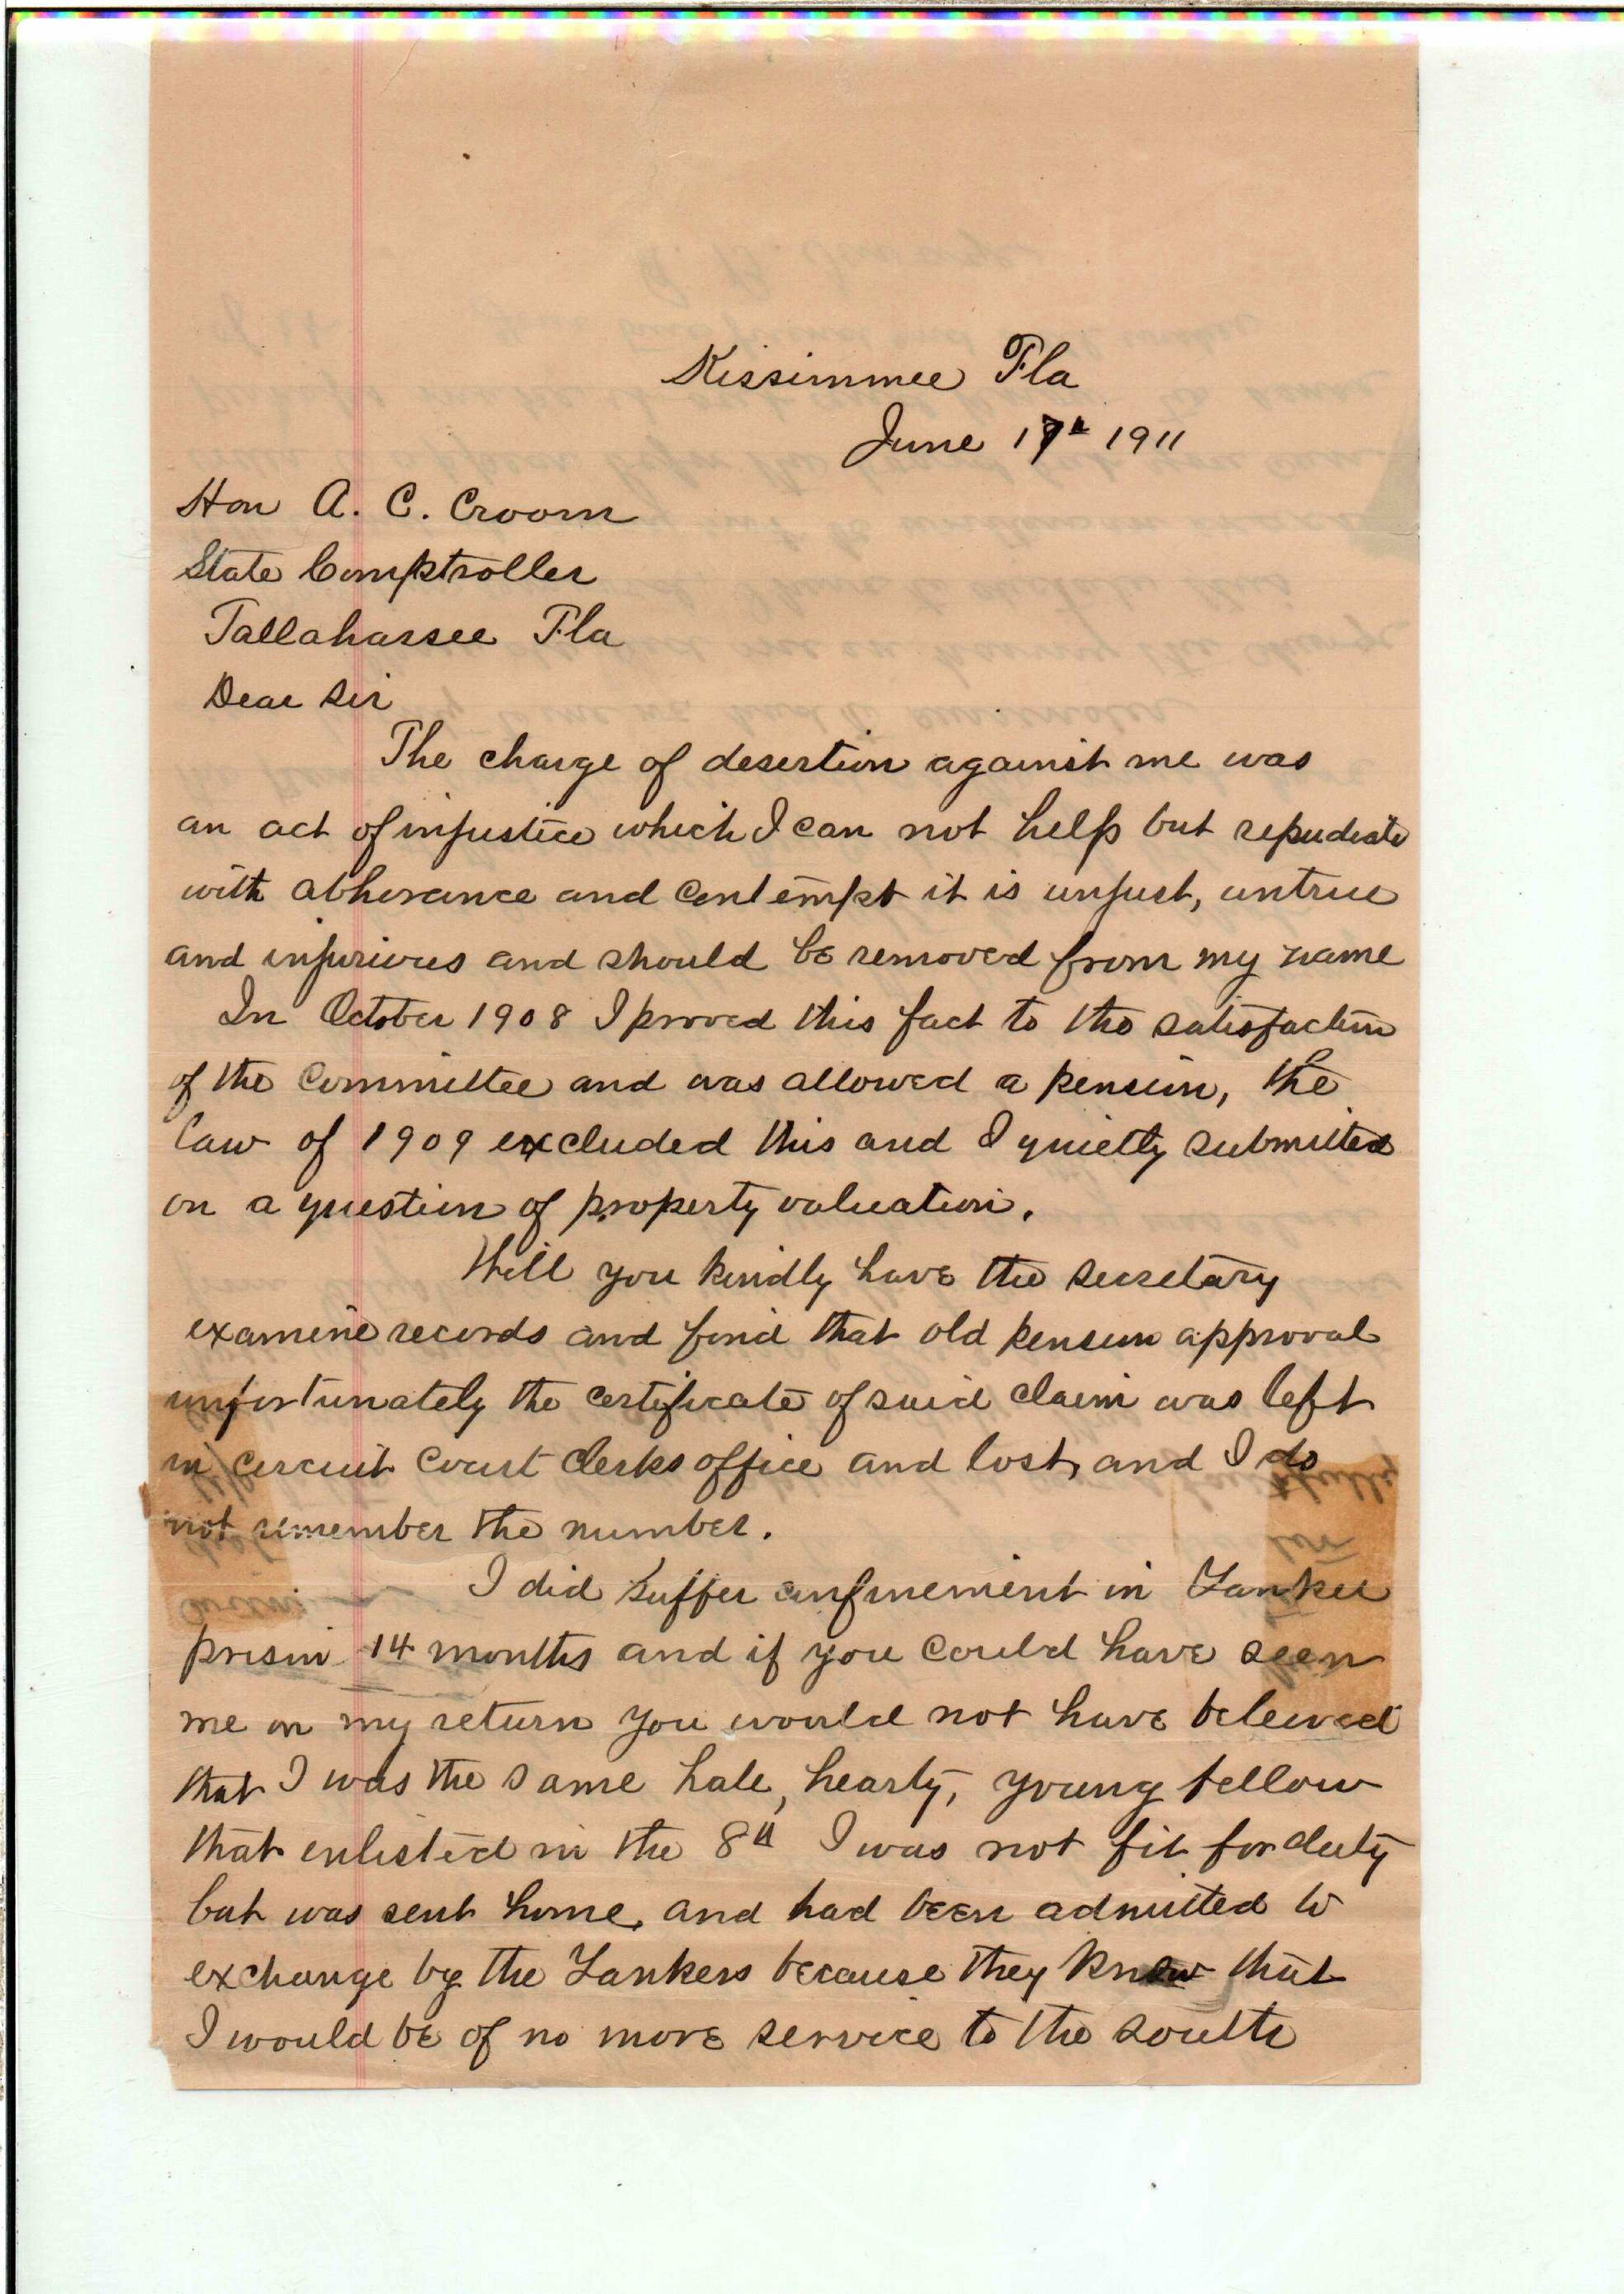 Kissimmee Fla
June 17th 1911
Hon A. C. Croom
State Comptroller
Tallahassee Fla
Dear Sir
The charge of desertion against me was
an act of injustice which I can not help but repudiate
with abhorance and contempt it is unjust, untrue
and injurious and should be removed from my name
In October 1908 I proved this fact to the satisfaction
of the committee and was allowed a pension, the
law of 1909 excluded this and I quietly submitted
on a question of property valuation.
Will you kindly have the secretary
examine records and find that old pension approval
unfortunately the certificate of said claim was left
in circuit court clerks office and lost, and I do
not remember the number.
I did suffer confinement in Yankee
prison 14 months and if you could have seen
me on my return you would not have beleived
that I was the same hale, hearty, young fellow
that enlisted in the 8th I was not fit for duty
but was sent home, and had been admitted to
exchange by the Yankees because they knew that
I would be of no more service to the south